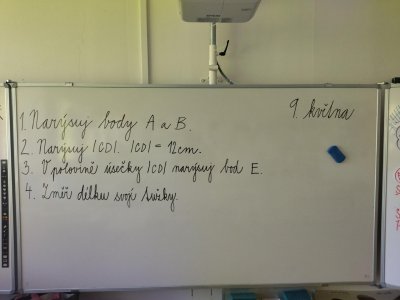 9. května
1. Narýsuj body A a B.
2. Narýsuj |CD|. |CD| = 12cm.
3. V polovině úsečky |CD| narýsuj bod E.
4. Změř délku svojí tužky.